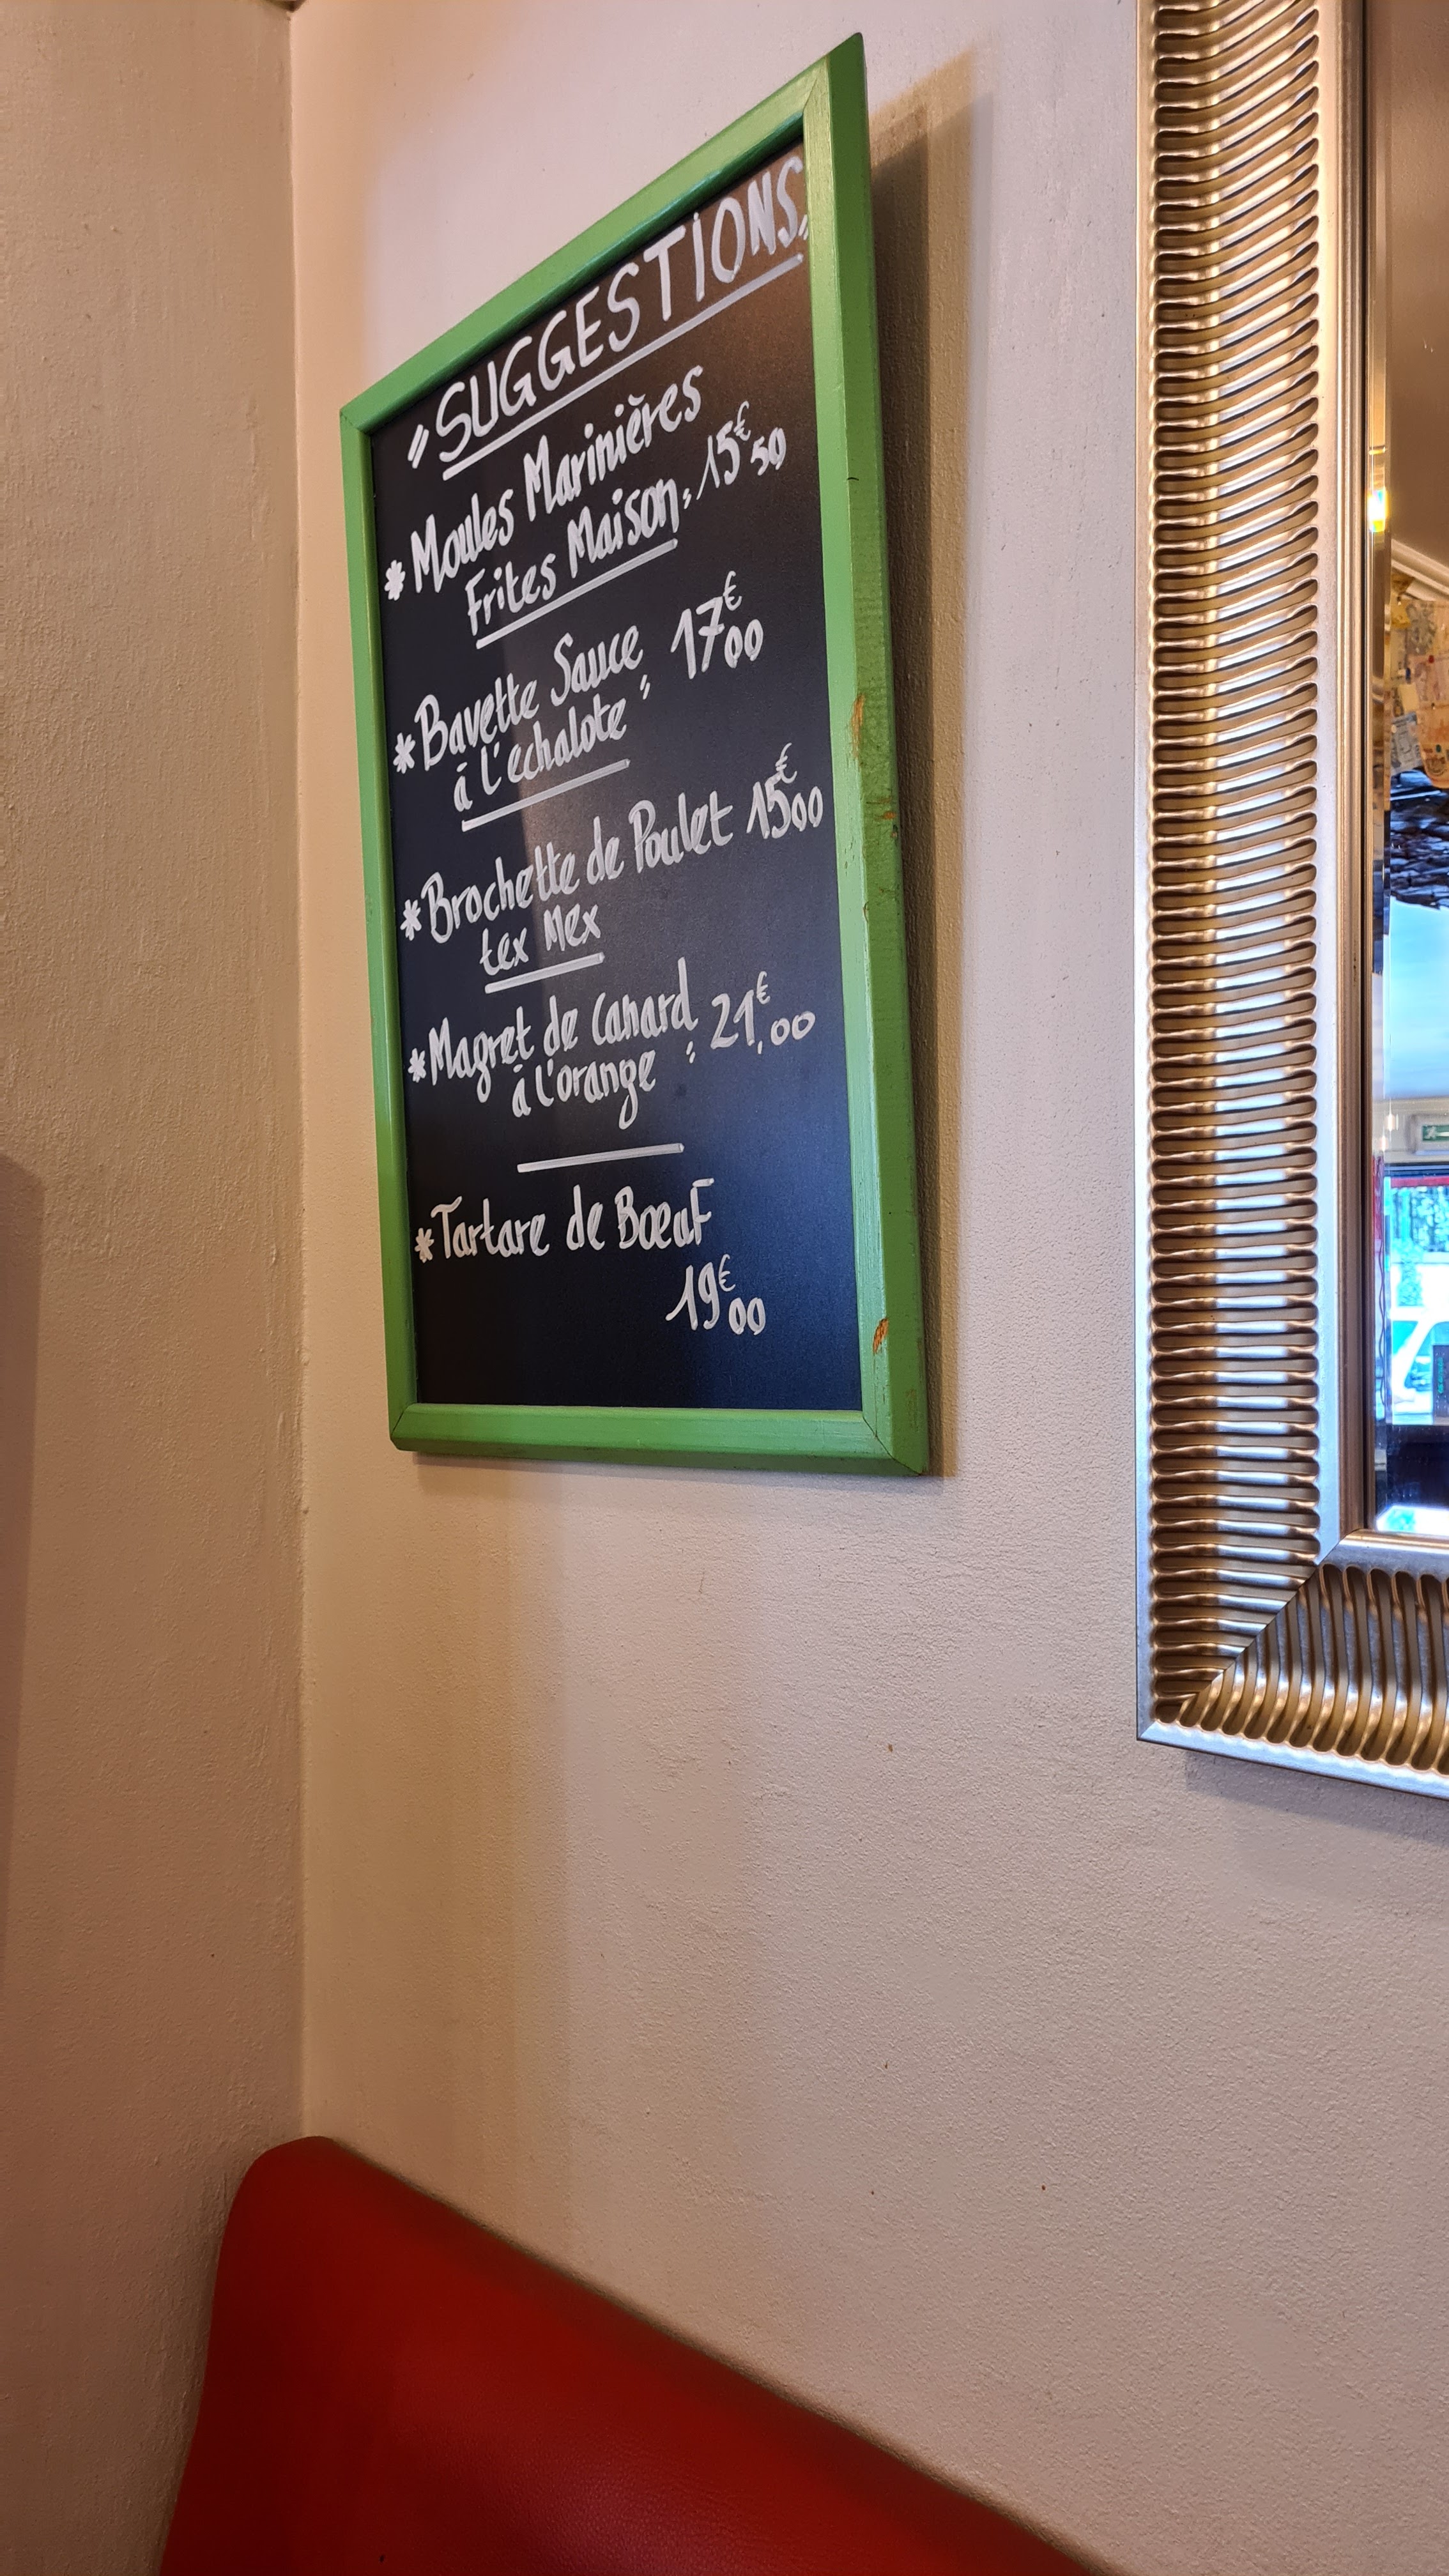 "SUGGESTIONS"
* Moules Marinières
Frites Maison : 15€50
* Bavette Sauce
à l'échalote : 17€00
* Brochette de Poulet 15€00
tex Mex
* Magret de Canard
à l'orange : 21€,00
* Tartare de BœuF
19€00